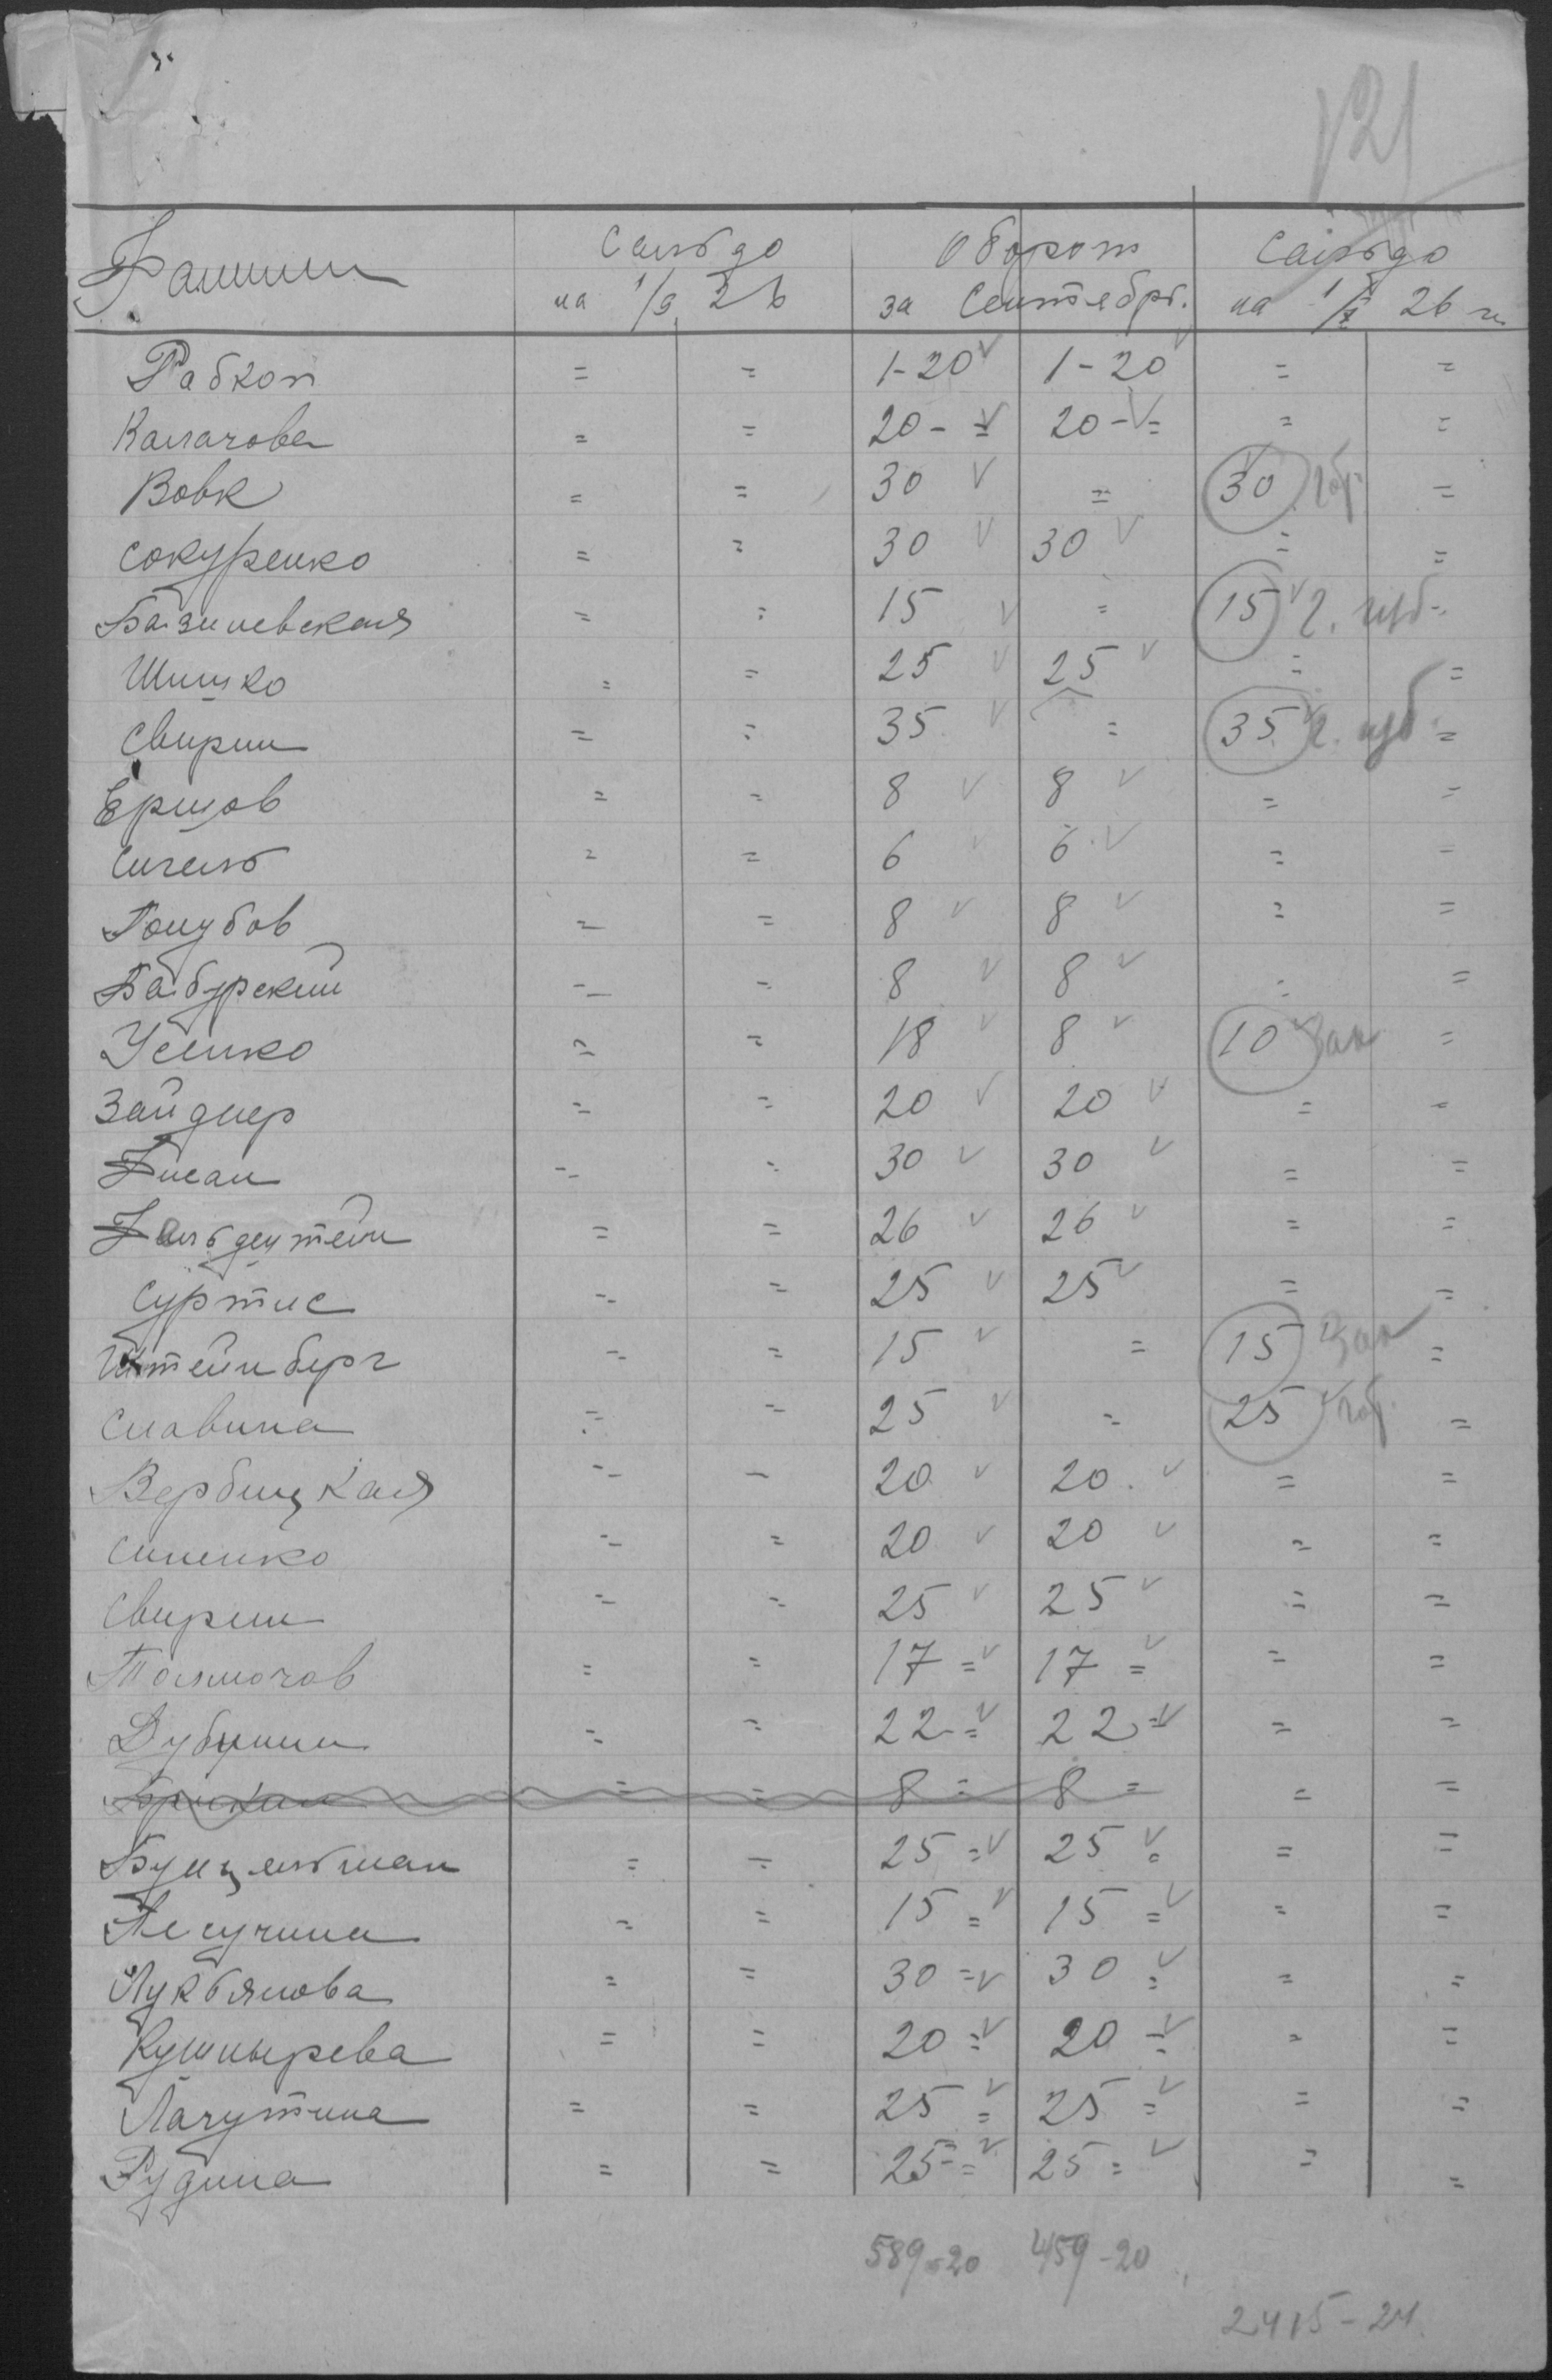 121
Фамилии Сальдо Оборот Сальдо
на 1/9 26 за Сентябрь. на 1/X 26 г.
Рабкоп = = 1-20 v 1-20 v = =
Калачова = = 20 - = v 20 - = v = =
Вовк = = 30 v = 30 v =
Сокуренко = = 30 v 30 v = =
Базилевская = = 15 v = 15 v г. изб =
Шишко = = 25 v 25 v = =
Свирин = = 35 v = 35 v г. изб =
Ершов = = 8 v 8 v = =
Сигель = = 6 v 6 v = =
Голубов = = 8 v 8 v = =
Бабурский = = 8 v 8 v = =
Усенко = = 18 v 8 v 10 v Зак =
Зайднер = = 20 v 20 v = =
Гисан = = 30 v 30 v = =
Гольдштейн = = 26 v 26 v = =
Суртис = = 25 v 25 v = =
Штейнберг = = 15 v = 15 v Зак =
Славина = = 25 v = 25 v =
Вербицкая = = 20 v 20 v = =
Синенко = = 20 v 20 v = =
Свирин = = 25 v 25 v = =
Толмочов = = 17 = v 17 = v = =
Дубинин = = 22 = v 22 = v = =
= = 8 = 8 = = =
Бунцельман = = 25 = v 25 = v = =
Песучина = = 15 = v 15 = v = =
Лукьянова = = 30 = v 30 = v = =
Кушнырева = = 20 = v 20 = v = =
Лагутина = = 25 = v 25 = v = =
Рудина = = 25 = v 25 = v = =
589-20 459-20
2415-24